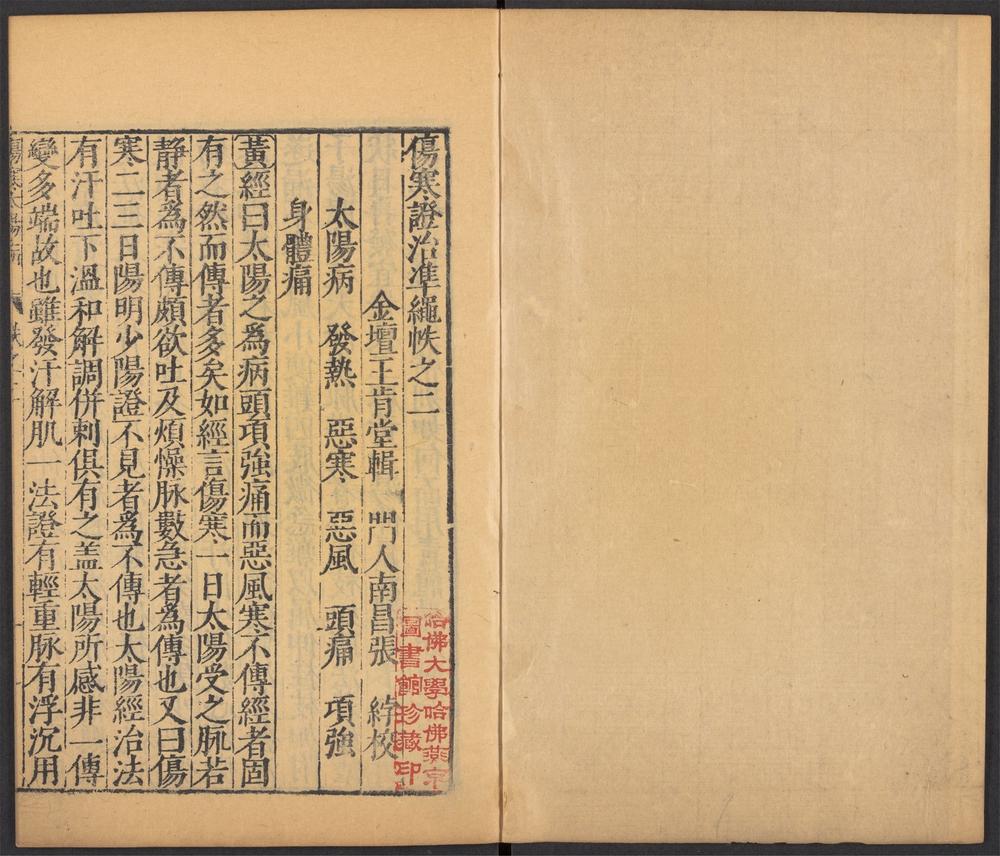 傷寒證治準繩帙之二
金壇王肯堂輯 門人南昌張 綍校
太陽病 發熱 惡寒 惡風 頭痛 項強
身體痛
黃經曰太陽之爲病頭項強痛而惡風寒不傳經者固
有之然而傳者多矣如經言傷寒一日太陽受之脉若
靜者爲不傳頗欲吐及煩懆脉數急者爲傳也又曰傷
寒二三日陽明少陽證不見者爲不傳也太陽經治法
有汗吐下溫和解調併刺俱有之盖太陽所感非一傳
變多端故也雖發汗解肌一法證有輕重脉有浮沉用
傷寒太陽病
哈佛大學哈佛燕京
圖書館珍藏印